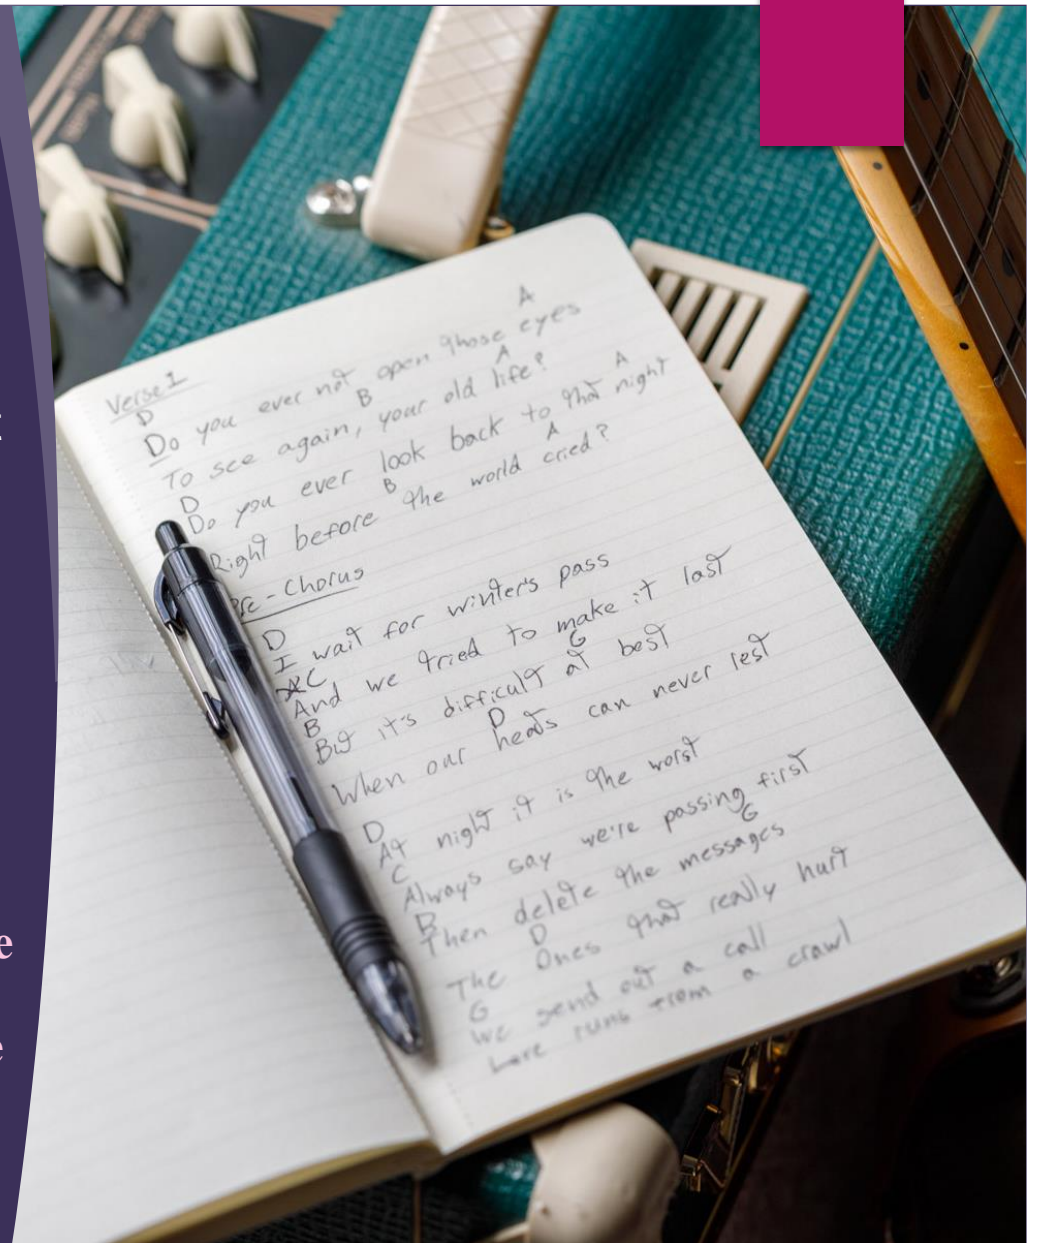 Verse 1
A
D
Do you ever not open those eyes
B A
To see again, your old life?
D A
Do you ever look back to that night
B A
Right before the world cried?
Pre-Chorus
D
I wait for winter's pass
C
And we tried to make it last
B G
But it's difficult at best
D
When our heads can never rest
D
At night it is the worst
C
Always say we're passing first
B G
Then delete the messages
D
The Ones that really hurt
G
We send out a call
runs from a crawl
e
e